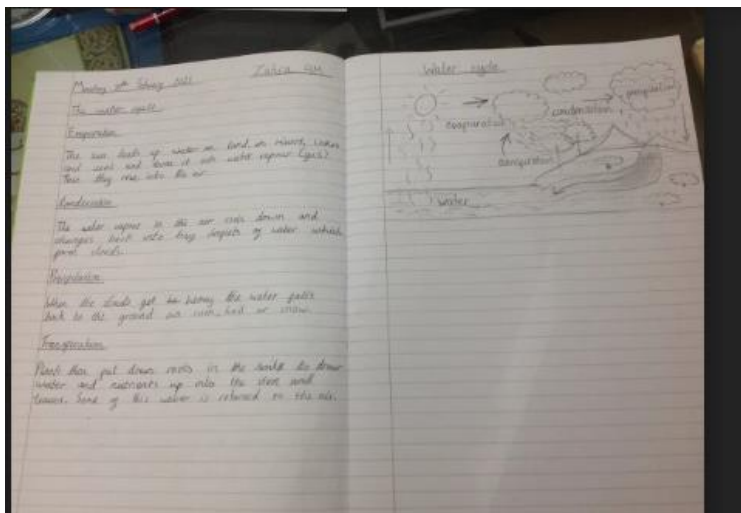 Monday 2021
Zahra 4M
The water cycle
Evaporation
The sun heats up water on land, in rivers, lakes
and seas and turns it into water vapour (gas).
Then they rise into the air.
Condensation
The water vapour in the air cools down and
changes back into tiny droplets of water which
form clouds.
Precipitation
When the clouds get too heavy the water falls
back to the ground as rain, hail or snow.
Transpiration
Plants then put down roots in the soil to draw
water and nutrients up into the stem and
leaves. Some of this water is returned to the air.
Water cycle
evaporation
condensation
precipitation
transpiration
water